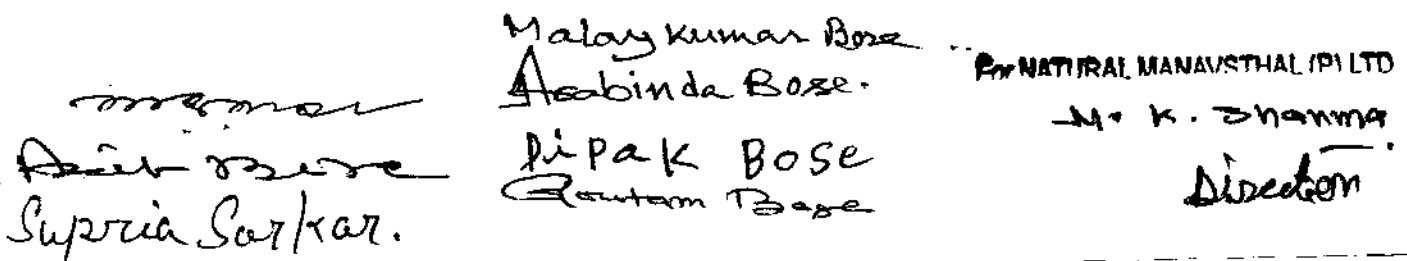 Asit Bose
Supria Sarkar.
Malay Kumar Bose
Arabinda Bose.
Dipak Bose
Goutam Bose
For NATURAL MANAVSTHAL (P) LTD
M. K. Sharma
Director